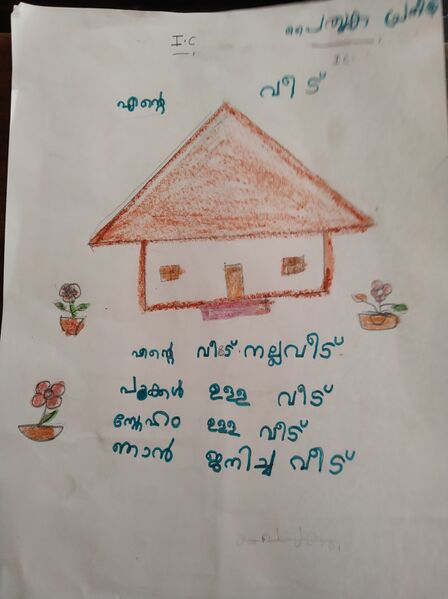 I.C
എന്റെ വീട്
എന്റെ വീട് നല്ലവീട്
പൂക്കൾ ഉള്ള വീട്
സ്നേഹം ഉള്ള വീട്
ഞാൻ ജനിച്ച വീട്